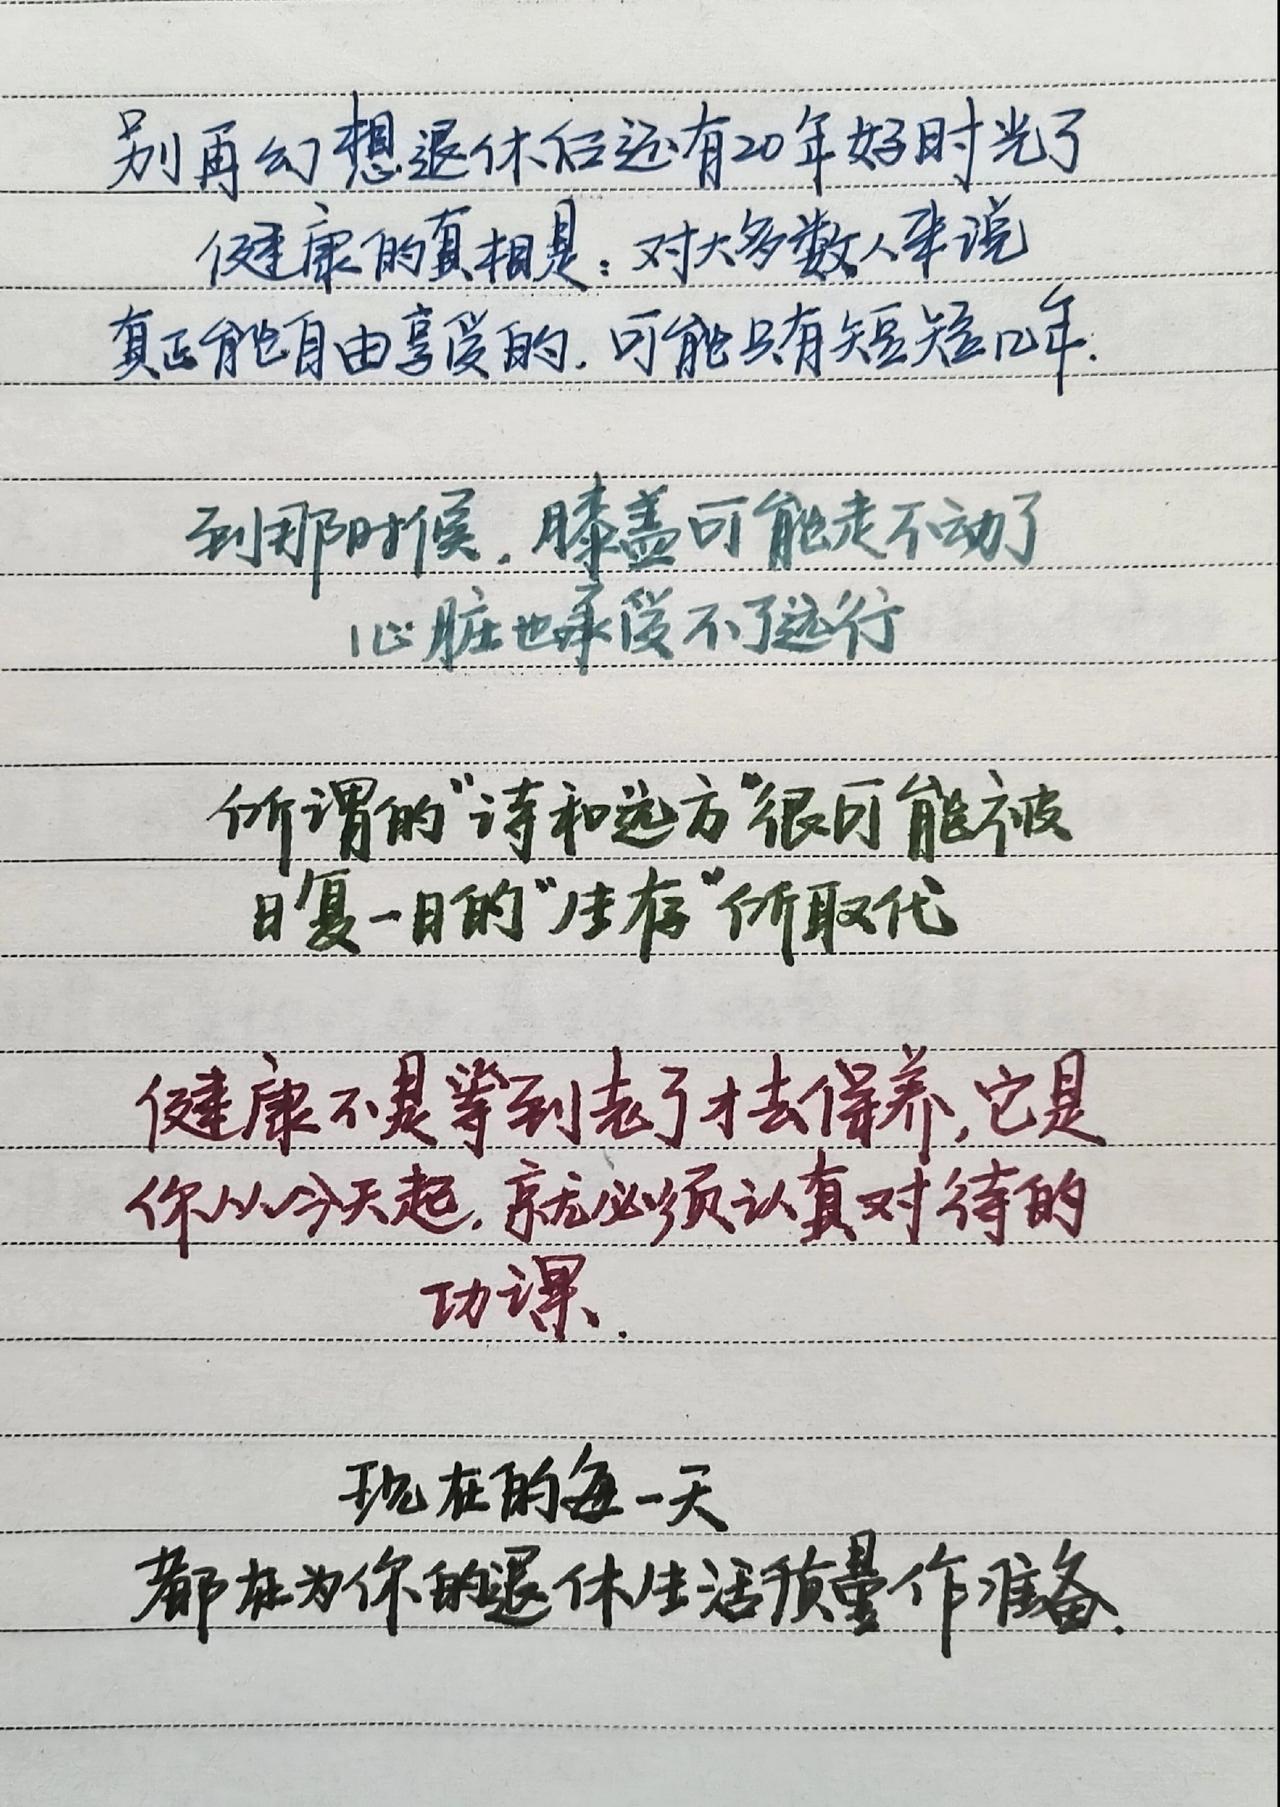 别再幻想退休后还有20年好时光了
健康的真相是：对大多数人来说
真正能自由享受的.可能只有短短几年.
到那时候.膝盖可能走不动了
心脏也承受不了远行
所谓的"诗和远方"很可能被
日复一日的"生存"所取代
健康不是等到老了才去保养,它是
你从今天起.就必须认真对待的
功课.
现在的每一天
都在为你的退休生活质量作准备.